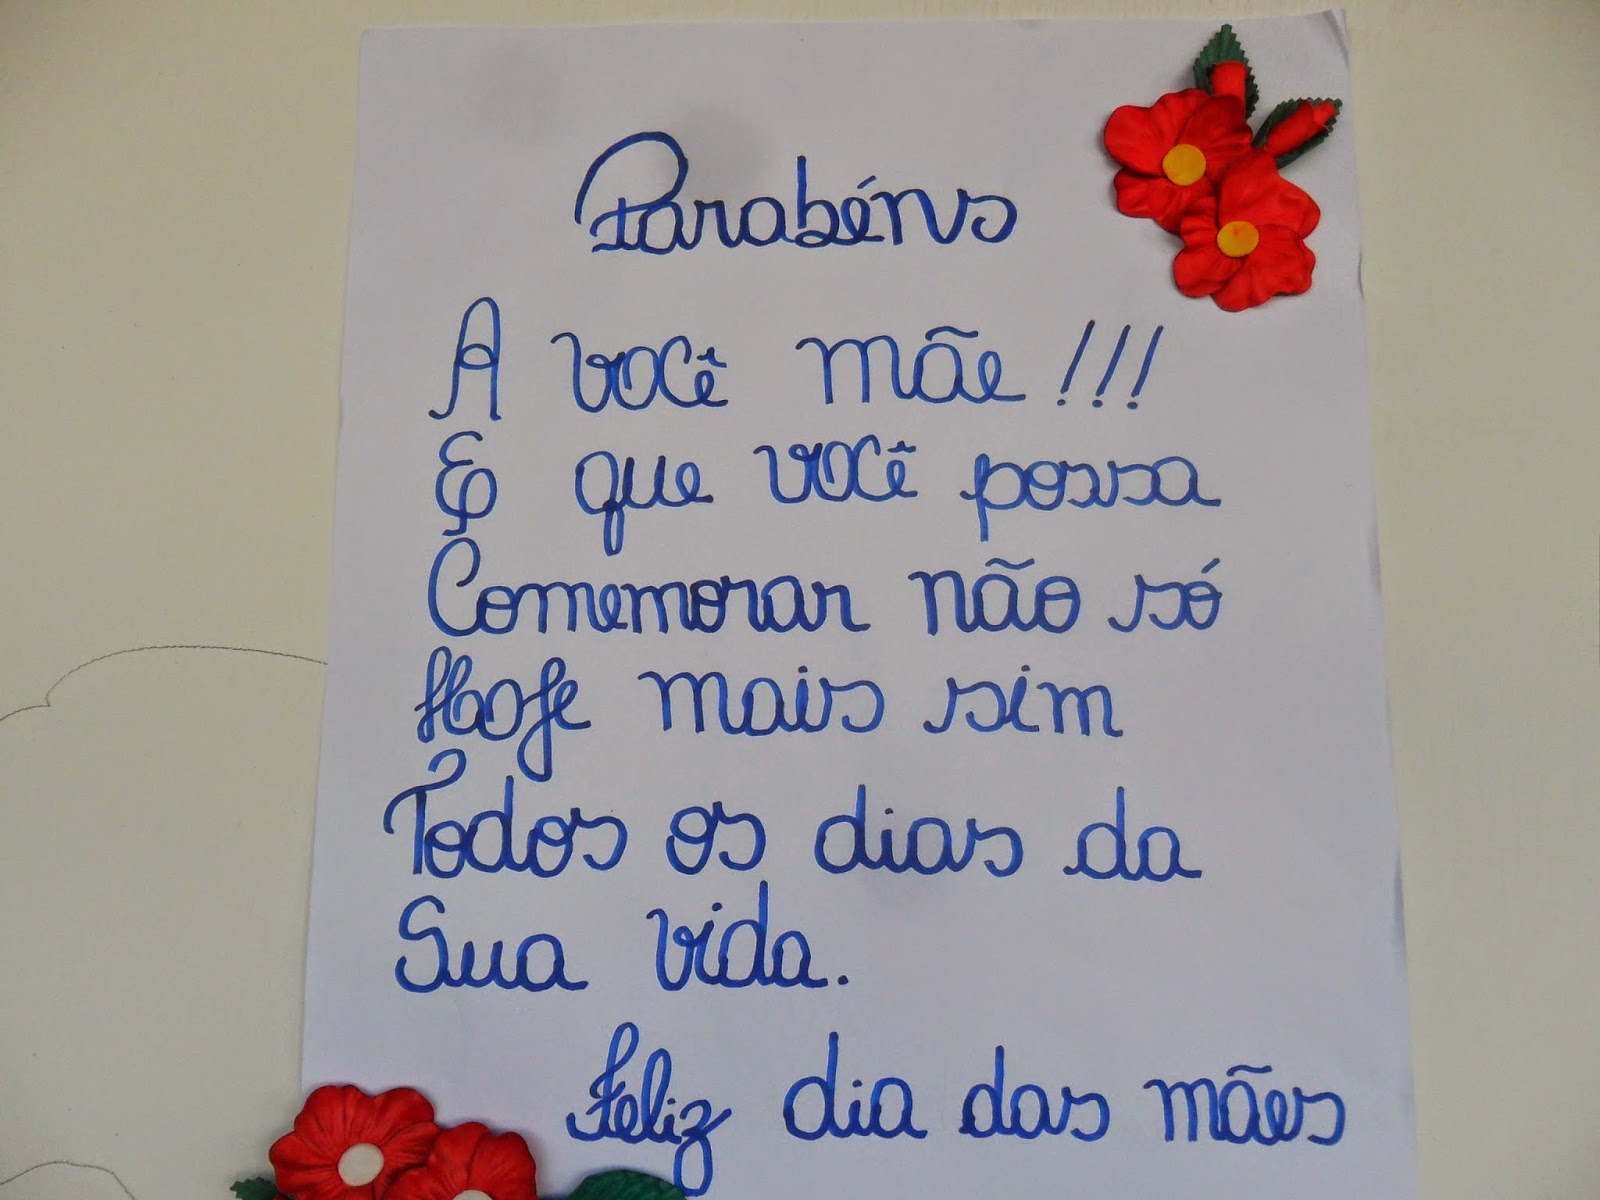 Parabéns
A você mãe!!!
E que você possa
Comemorar não só
Hoje mais sim
Todos os dias da
Sua vida.
Feliz dia das mães